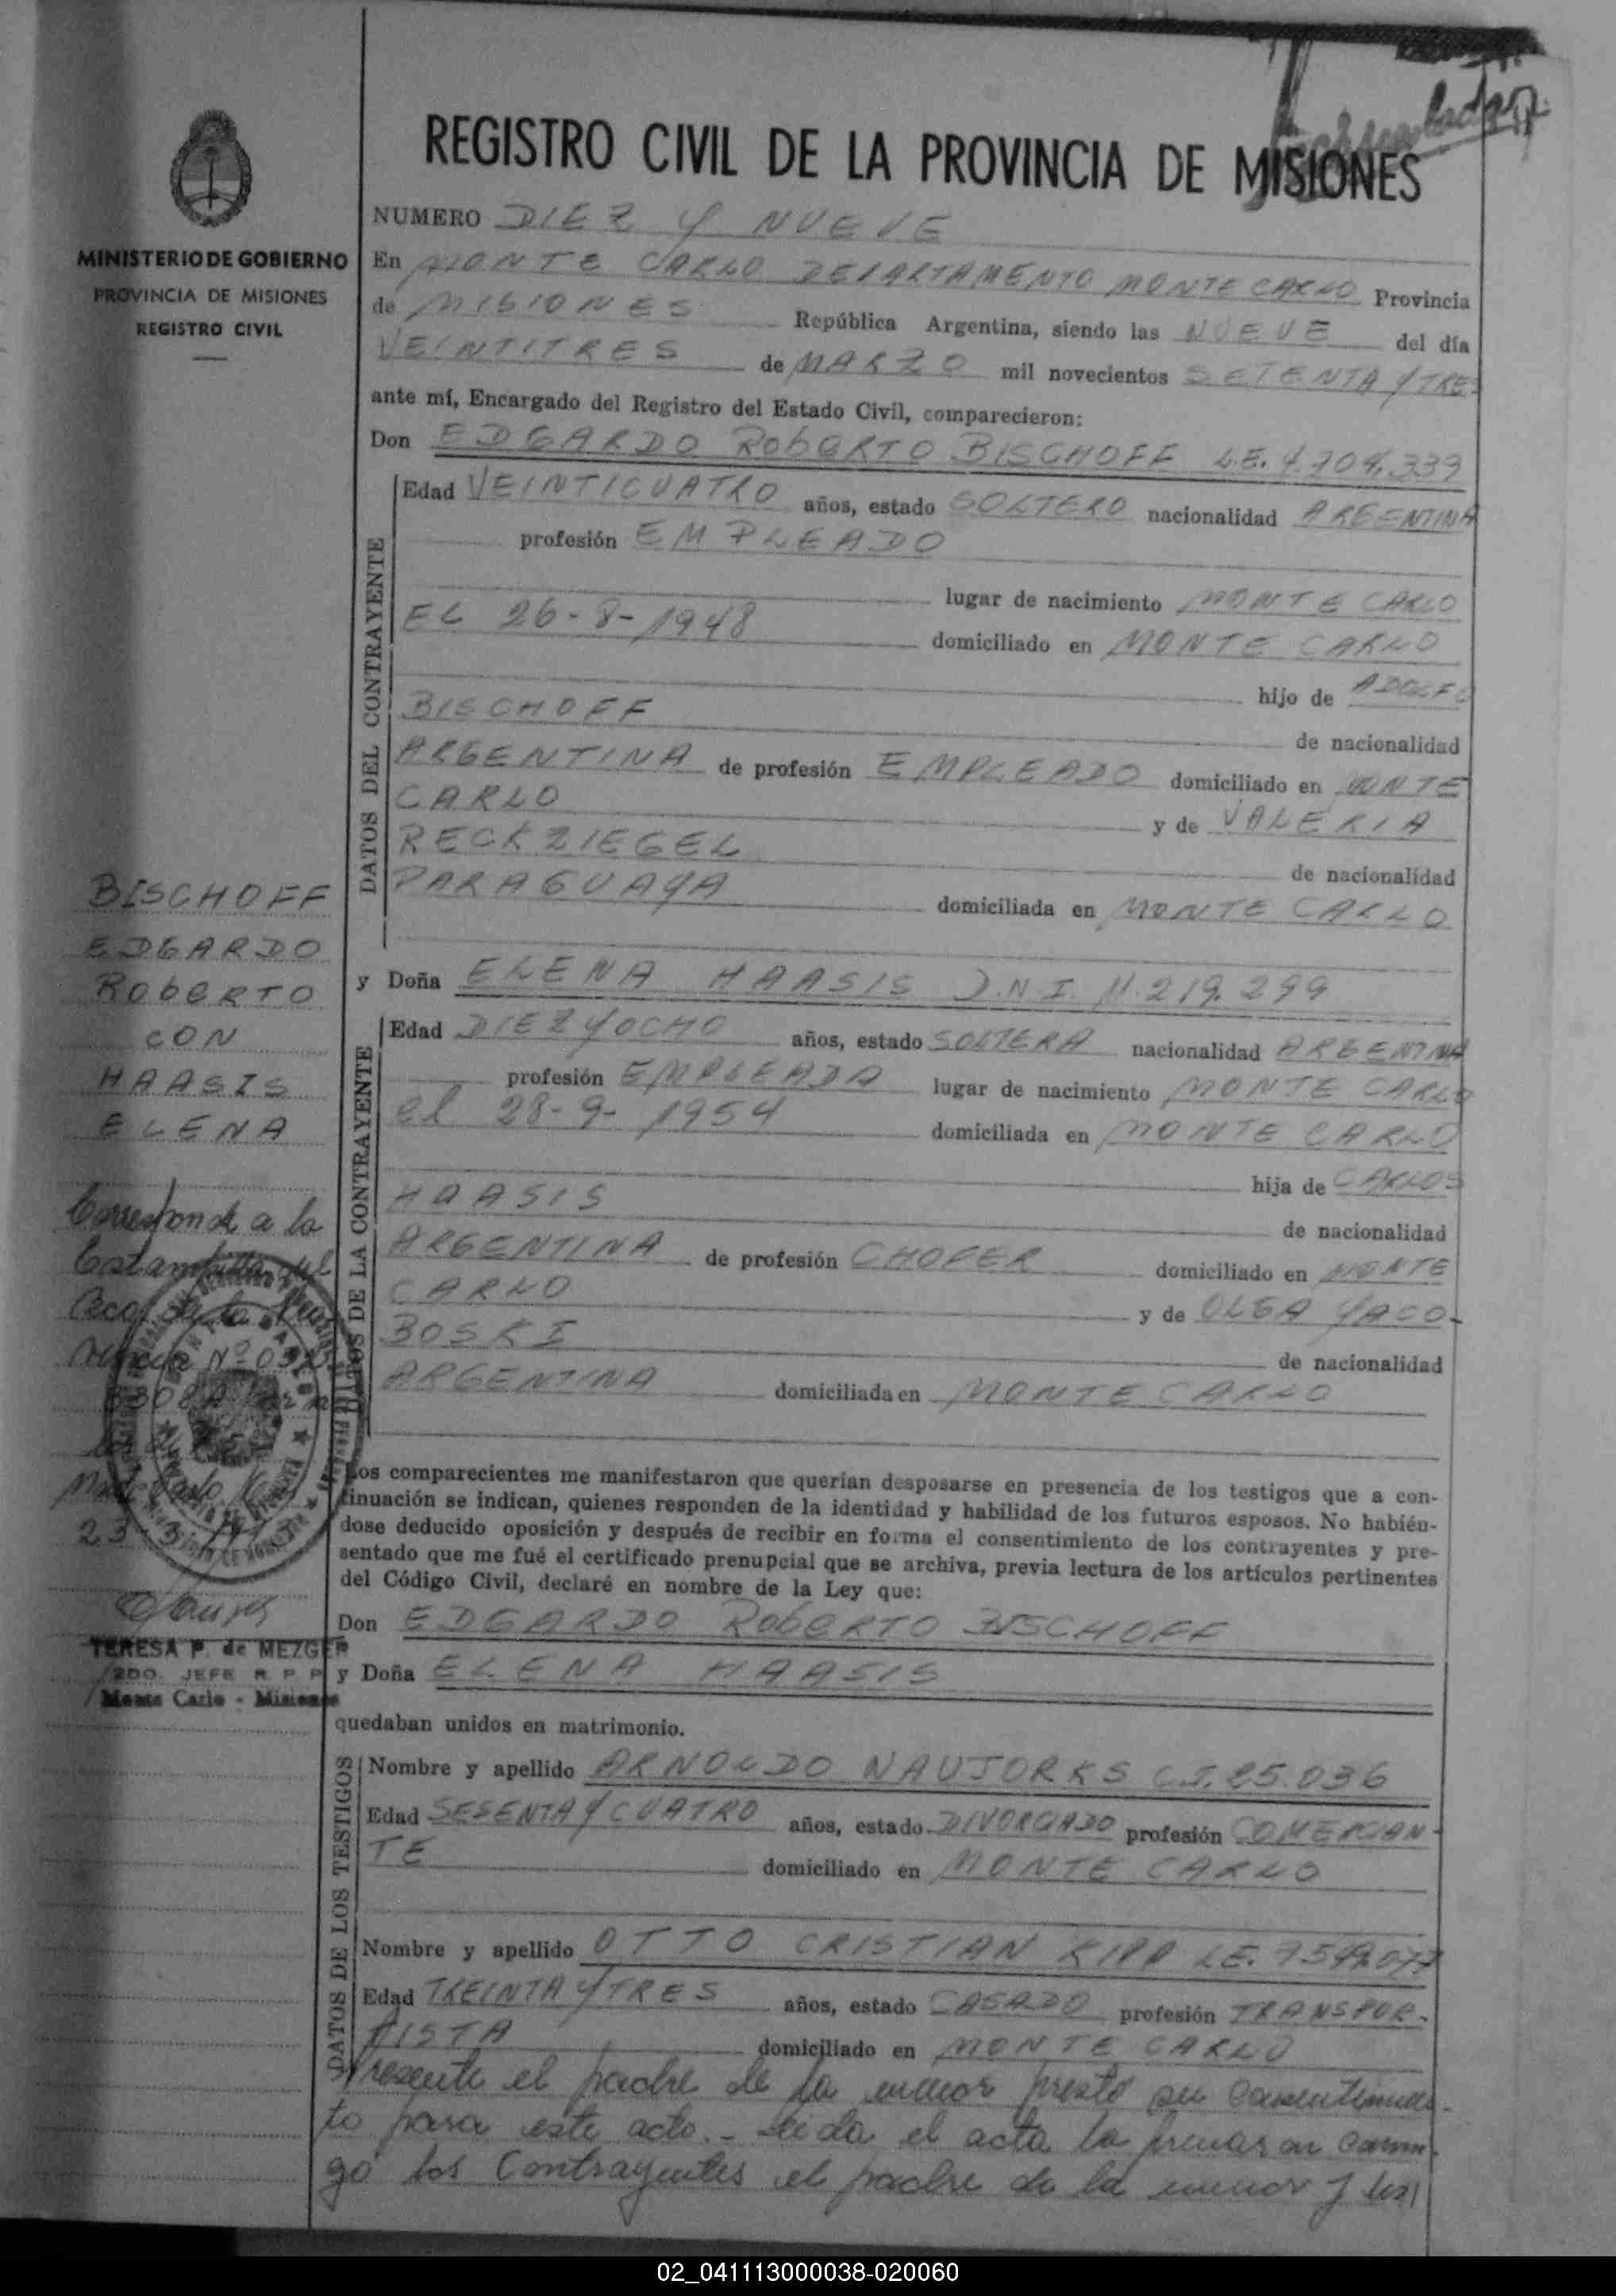 MINISTERIO DE GOBIERNO
PROVINCIA DE MISIONES
REGISTRO CIVIL
REGISTRO CIVIL DE LA PROVINCIA DE MISIONES
NUMERO DIEZ Y NUEVE
En MONTE CARLO DEPARTAMENTO MONTE CARLO Provincia
de MISIONES República Argentina, siendo las NUEVE del día
VEINTITRES de MARZO mil novecientos SETENTA Y TRES
ante mí, Encargado del Registro del Estado Civil, comparecieron:
Don EDGARDO ROBERTO BISCHOFF L.E. 4.704.339
DATOS DEL CONTRAYENTE
Edad VEINTICUATRO años, estado SOLTERO nacionalidad ARGENTINA
profesión EMPLEADO
lugar de nacimiento MONTE CARLO
EL 26-8-1948 domiciliado en MONTE CARLO
hijo de ADOLFO
BISCHOFF de nacionalidad
ARGENTINA de profesión EMPLEADO domiciliado en MONTE
CARLO y de VALERIA
RECKZIEGEL de nacionalidad
PARAGUAYA domiciliada en MONTE CARLO
y Doña ELENA HAASIS D.N.I. 11.219.299
DATOS DE LA CONTRAYENTE
Edad DIEZ Y OCHO años, estado SOLTERA nacionalidad ARGENTINA
profesión EMPLEADA lugar de nacimiento MONTE CARLO
el 28-9-1954 domiciliada en MONTE CARLO
hija de CARLOS
HAASIS de nacionalidad
ARGENTINA de profesión CHOFER domiciliado en MONTE
CARLO y de OLGA YACO-
BOSKI de nacionalidad
ARGENTINA domiciliada en MONTE CARLO
Los comparecientes me manifestaron que querían desposarse en presencia de los testigos que a con-
tinuación se indican, quienes responden de la identidad y habilidad de los futuros esposos. No habién-
dose deducido oposición y después de recibir en forma el consentimiento de los contrayentes y pre-
sentado que me fué el certificado prenupcial que se archiva, previa lectura de los artículos pertinentes
del Código Civil, declaré en nombre de la Ley que:
Don EDGARDO ROBERTO BISCHOFF
y Doña ELENA HAASIS
quedaban unidos en matrimonio.
DATOS DE LOS TESTIGOS
Nombre y apellido ARNOLDO NAUJORKS C.I. 25.036
Edad SESENTA Y CUATRO años, estado DIVORCIADO profesión COMERCIAN-
TE domiciliado en MONTE CARLO
Nombre y apellido OTTO CRISTIAN KIPP L.E. 7.549.077
Edad TREINTA Y TRES años, estado CASADO profesión TRANSPOR-
TISTA domiciliado en MONTE CARLO
Presente el padre de la menor prestó su consentimien-
to para este acto.- Leida el acta la firmaron conmi-
go los Contrayentes el padre de la menor y los
BISCHOFF
EDGARDO
ROBERTO
CON
HAASIS
ELENA
Corresponde a la
Estampilla del
Nº
23-3-
TERESA P. de MEZGER
2DO. JEFE R. P. P.
Monte Carlo - Misiones
02_041113000038-020060